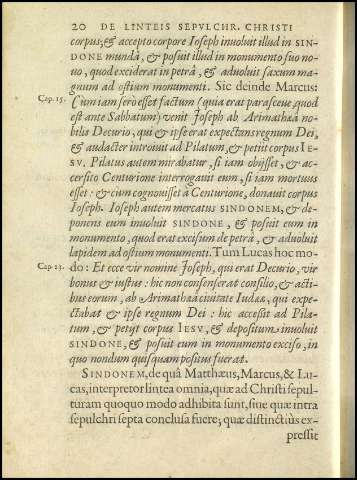 20 DE LINTEIS SEPVLCHR. CHRISTI
corpus; & accepto corpore Ioseph inuoluit illud in SIN-
DONE mundâ, & posuit illud in monumento suo no-
uo, quod exciderat in petrâ, & aduoluit saxum ma-
gnum ad ostium monumenti. Sic deinde Marcus:
Cap. 15.
Cùm iam serò esset factum (quia erat parasceue quod
est ante Sabbatum) venit Ioseph ab Arimathæa no-
bilis Decurio, qui & ipse erat expectans regnum Dei,
& audacter introiuit ad Pilatum, & petiit corpus IE-
SV. Pilatus autem mirabatur, si iam obijsset, & ac-
cersito Centurione interrogauit eum, si iam mortuus
esset: & cùm cognouisset à Centurione, donauit corpus
Ioseph. Ioseph autem mercatus SINDONEM, & de-
ponens eum inuoluit SINDONE, & posuit eum in
monumento, quod erat excisum de petrâ, & aduoluit
lapidem ad ostium monumenti. Tum Lucas hoc mo-
Cap. 23.
do: Et ecce vir nomine Ioseph, qui erat Decurio, vir
bonus & iustus: hic non consenserat consilio, & acti-
bus eorum, ab Arimathæa ciuitate Iudææ, qui expe-
ctabat & ipse regnum Dei: hic accessit ad Pila-
tum, & petijt corpus IESV, & depositum inuoluit
SINDONE, & posuit eum in monumento exciso, in
quo nondum quisquam positus fuerat.
SINDONEM, de quâ Matthæus, Marcus, & Lu-
cas, interpretor lintea omnia, quæ ad Christi sepul-
turam quoquo modo adhibita sunt, siue quæ intra
sepulchri septa conclusa fuere; quæ distinctiùs ex-
pressit